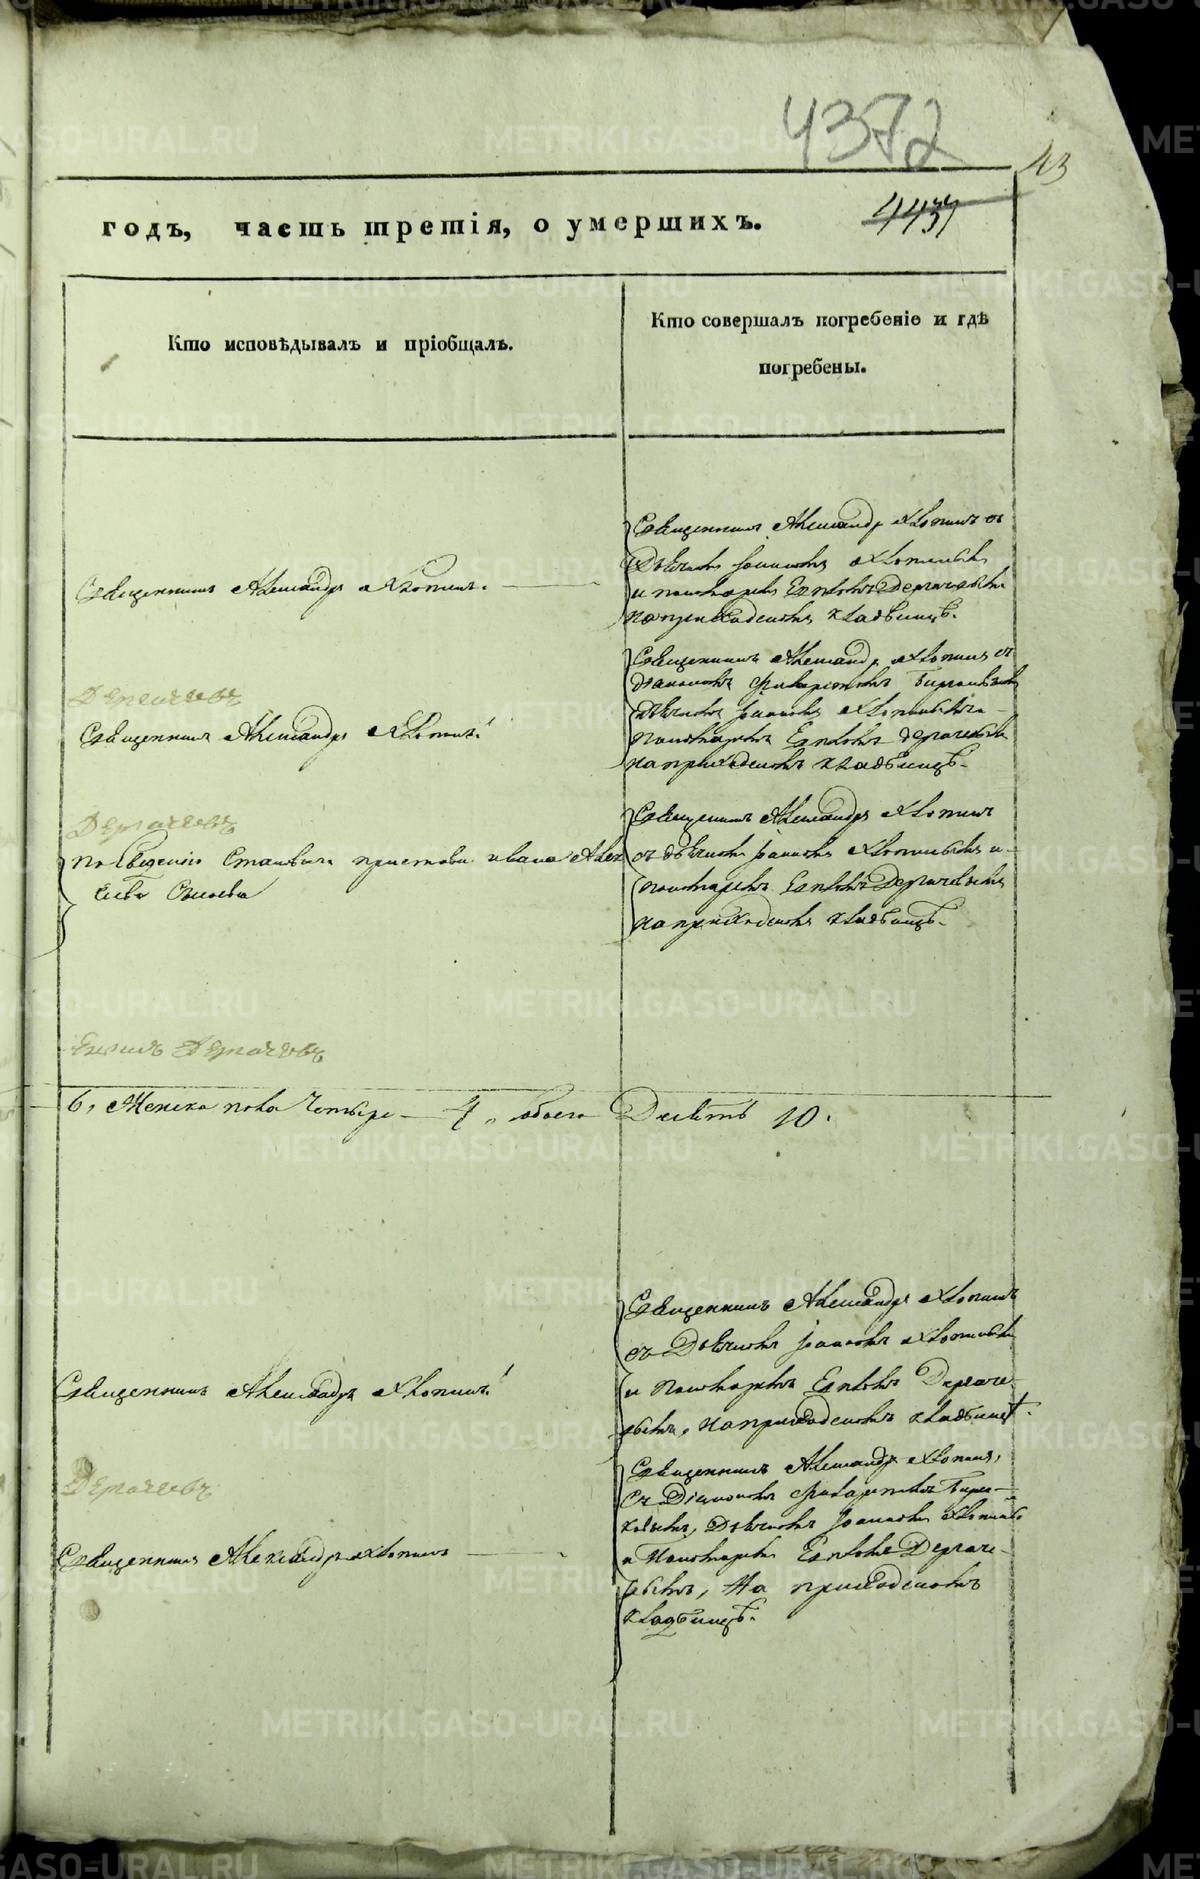 4372
43
годъ, часть третія, о умершихъ.
4437
Кто исповѣдывалъ и пріобщалъ.
Кто совершалъ погребеніе и гдѣ
погребены.
Священникъ Александръ Хлопинъ.
Священникъ Александръ Хлопинъ съ
Дьячкомъ Іоанномъ Хлопинымъ
и пономаремъ Дергачевымъ
на приходскомъ кладбищѣ.
Дергачевъ
Священникъ Александръ Хлопинъ
Священникъ Александръ Хлопинъ съ
діакономъ
дьячкомъ Іоанномъ Хлопинымъ и
пономаремъ Дергачевымъ
на приходскомъ кладбищѣ.
Дергачевъ
По сведенію пристава Ивана
Священникъ Александръ Хлопинъ
съ дьячкомъ Іоанномъ Хлопинымъ и
пономаремъ Дергачевымъ
на приходскомъ кладбищѣ.
Дергачевъ
6, Женска пола Четыре — 4, обоего Десять 10.
Священникъ Александръ Хлопинъ
Священникъ Александръ Хлопинъ
съ Дьячкомъ Іоанномъ Хлопинымъ
и Пономаремъ Дергаче-
вымъ, на приходскомъ кладбищѣ.
Дергачевъ
Священникъ Александръ Хлопинъ
Священникъ Александръ Хлопинъ,
съ Діакономъ
Дьячкомъ Іоанномъ Хлопинымъ
и Пономаремъ Дергаче-
вымъ, На приходскомъ
кладбищѣ.
METRIKI.GASO-URAL.RU